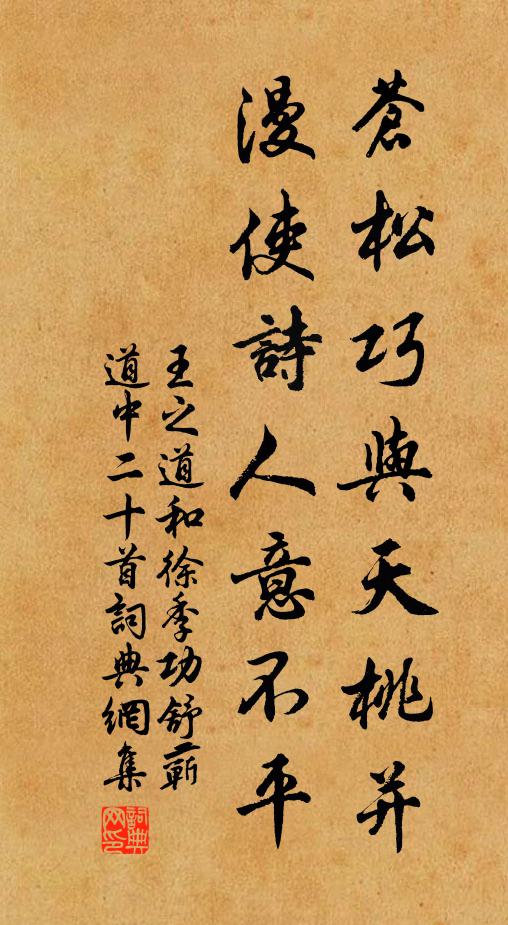 蒼松巧與天桃并
漫使詩人意不平
王之道和徐季功舒蘄
道中二十首詞典網集
詞典
网印